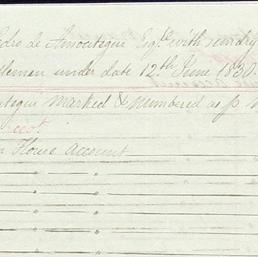 Pedro de Amoategui Esqr. with sundry
tlemen under date 12th June 1830.
ategui marked & numbered as p
House Account